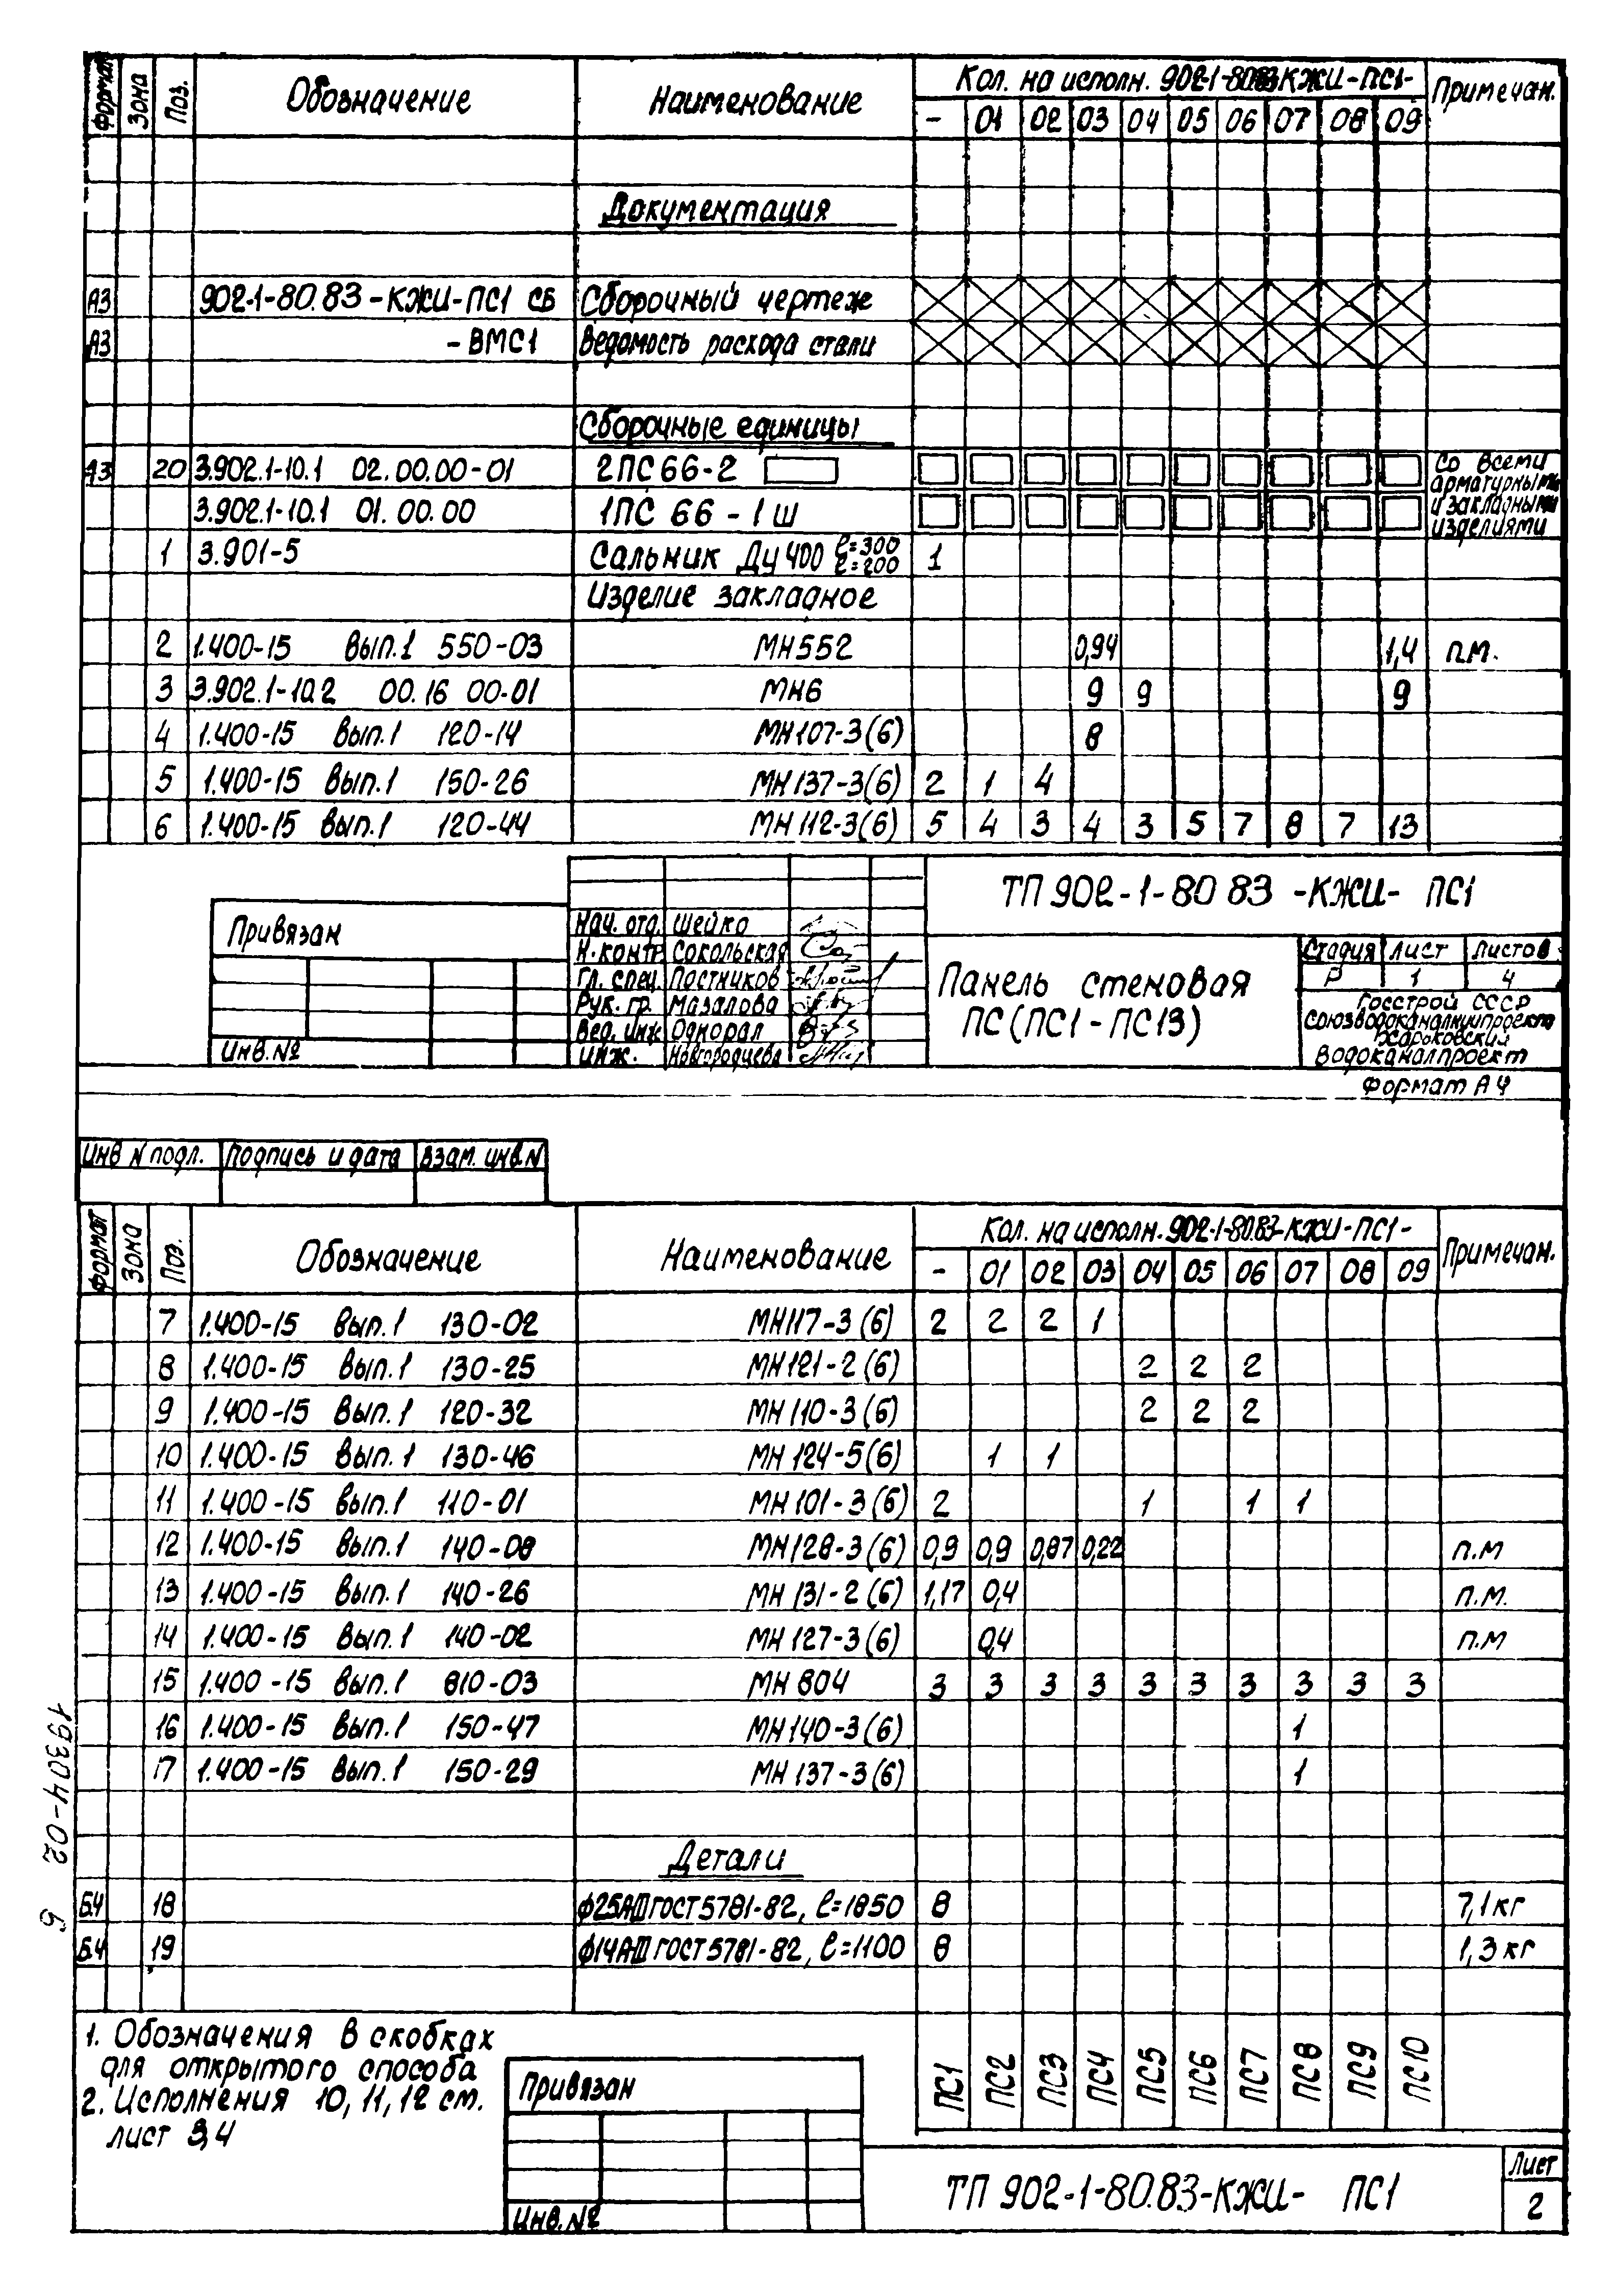 Формат Зона Поз. Обозначение Наименование Кол. на исполн. 902-1-80.83 КЖИ-ПС1- Примечан.
- 01 02 03 04 05 06 07 08 09
Документация
А3 902-1-80.83-КЖИ-ПС1 СБ Сборочный чертеж
А3 -ВМС1 Ведомость расхода стали
Сборочные единицы
А3 20 3.902.1-10.1 02.00.00-01 2ПС66-2 со всеми
арматурными
3.902.1-10.1 01.00.00 1ПС 66-1ш и закладными
изделиями
1 3.901-5 Сальник Ду400 ℓ=300 ℓ=200 1
Изделие закладное
2 1.400-15 Вып.1 550-03 МН552 0,94 1,4 п.м.
3 3.902.1-10.2 00.16 00-01 МН6 9 9 9
4 1.400-15 Вып.1 120-14 МН107-3(6) 8
5 1.400-15 Вып.1 150-26 МН137-3(6) 2 1 4
6 1.400-15 Вып.1 120-44 МН112-3(6) 5 4 3 4 3 5 7 8 7 13
ТП 902-1-80 83 -КЖИ- ПС1
Привязан
Инв.№
Нач. отд. Шейко
Н.контр. Сокольская
Гл. спец. Постников
Рук. гр. Мазалова
Вед. инж Однорал
Инж. Новгородцева
Панель стеновая
ПС (ПС1-ПС13)
Стадия Лист Листов
Р 1 4
Госстрой СССР
Союзводоканалниипроект
Харьковский
Водоканалпроект
Формат А4
Инв N подл. Подпись и дата Взам. инв.N
Формат Зона Поз. Обозначение Наименование Кол. на исполн. 902-1-80.83-КЖИ-ПС1- Примечан.
- 01 02 03 04 05 06 07 08 09
7 1.400-15 Вып.1 130-02 МН117-3(6) 2 2 2 1
8 1.400-15 Вып.1 130-25 МН121-2(6) 2 2 2
9 1.400-15 Вып.1 120-32 МН110-3(6) 2 2 2
10 1.400-15 Вып.1 130-46 МН124-5(6) 1 1
11 1.400-15 Вып.1 110-01 МН101-3(6) 2 1 1 1
12 1.400-15 Вып.1 140-08 МН128-3(6) 0,9 0,9 0,87 0,22 п.м
13 1.400-15 Вып.1 140-26 МН131-2(6) 1,17 0,4 п.м.
14 1.400-15 Вып.1 140-02 МН127-3(6) 0,4 п.м
15 1.400-15 Вып.1 810-03 МН804 3 3 3 3 3 3 3 3 3 3
16 1.400-15 Вып.1 150-47 МН140-3(6) 1
17 1.400-15 Вып.1 150-29 МН137-3(6) 1
Детали
Б.4 18 ф25АIII ГОСТ5781-82, ℓ=1850 8 7,1кг
Б.4 19 ф14АIII ГОСТ5781-82, ℓ=1100 8 1,3кг
ПС1 ПС2 ПС3 ПС4 ПС5 ПС6 ПС7 ПС8 ПС9 ПС10
1. Обозначения в скобках
для открытого способа
2. Исполнения 10, 11, 12 см.
лист 3,4
Привязан
Инв.№
ТП 902-1-80.83-КЖИ- ПС1
Лист
2
19304-02 6